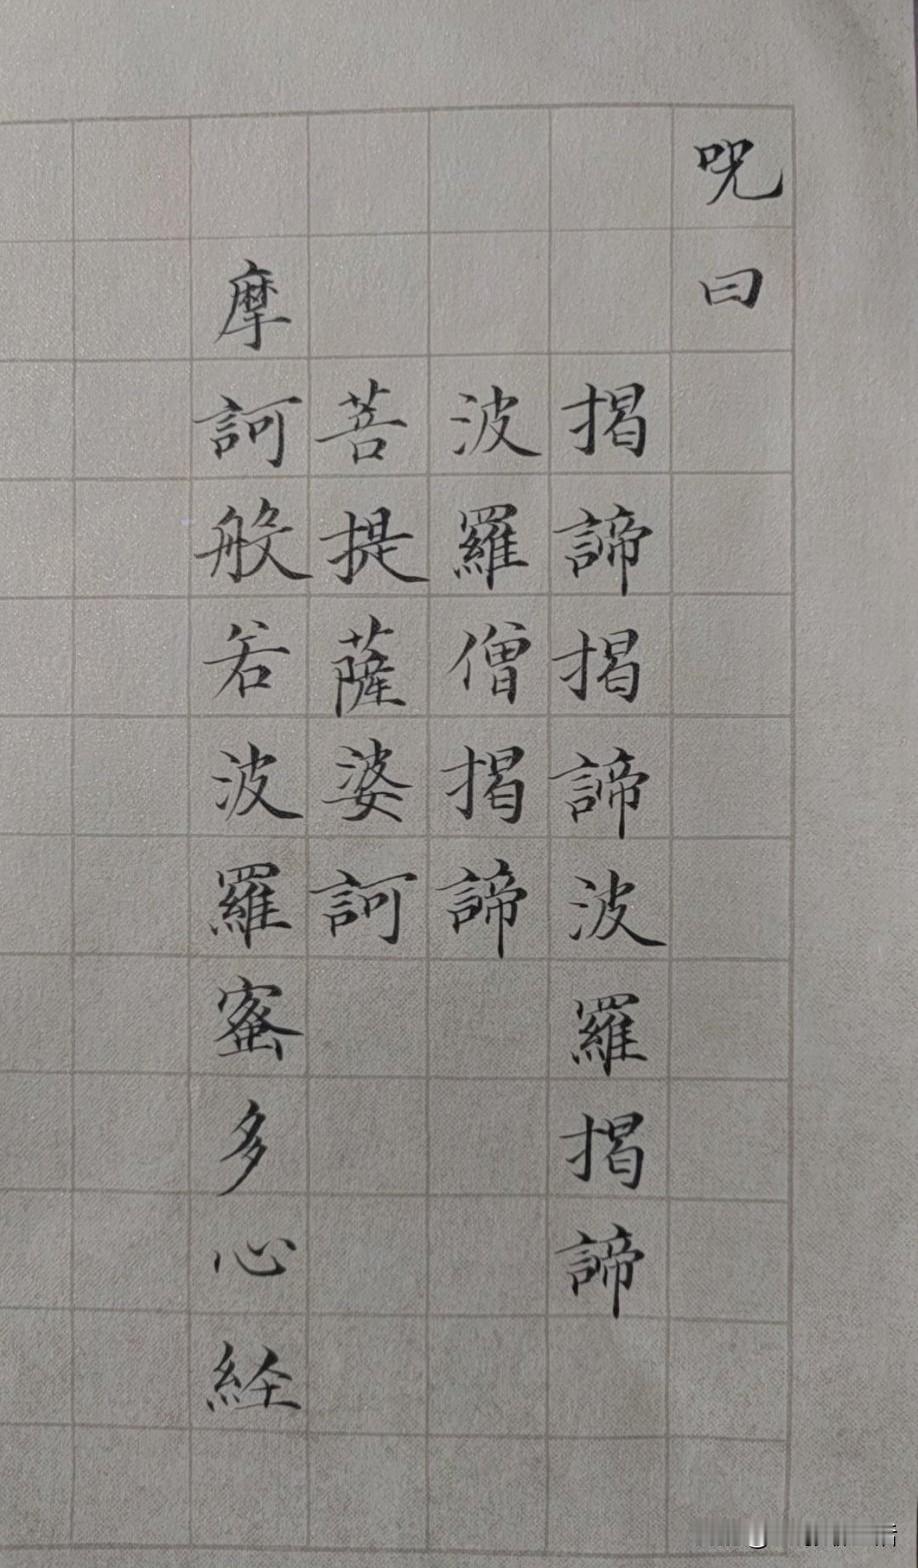 呪曰
揭諦揭諦波羅揭諦
波羅僧揭諦
菩提薩婆訶
摩訶般若波羅蜜多心経